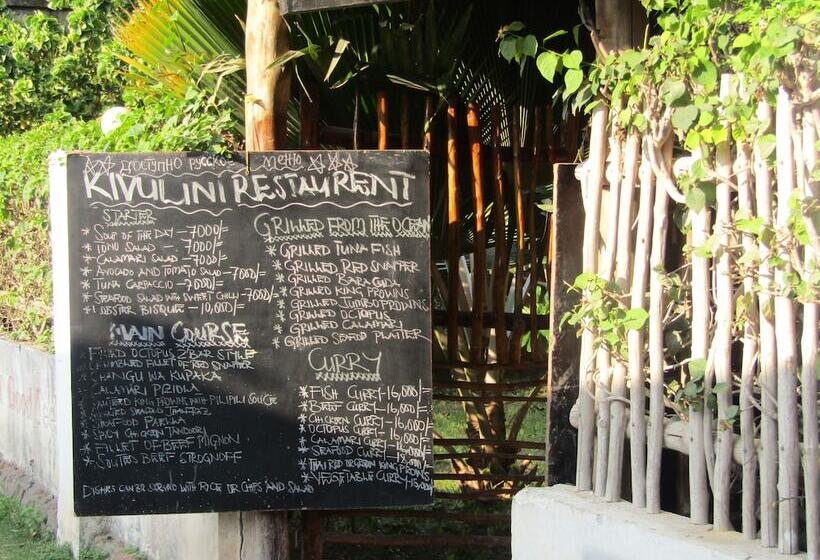 ДОСТУПНО РУССКОЕ МЕНЮ
KIVULINI RESTAURENT
STARTER
* SOUP OF THE DAY - 7000/=
* TONO SALAD - 7000/=
* CALAMARI SALAD - 7000/=
* AVOCADO AND TOMATO SALAD - 7000/=
* TUNA CARPACCIO - 7000/=
* SEAFOOD SALAD WITH SWEET CHILLI - 7000/=
* LOBSTER BISQUE - 10,000/=
MAIN COURSE
OCTOPUS ZZBAR STYLE
FILLET OF RED SNAPPER
CHANGU WA KUPAKA
CALAMARI
KING PROWNS WITH PILIPILI SOUCE
SEAFOOD
* SEAFOOD
* SPICY CHICKEN TANDORI
* FILLET OF BEEF MIGNON
* SOUTEES BEEF STROGNOFF
GRILLED FROM THE OCEAN
* GRILLED TUNA FISH
* GRILLED RED SNAPPER
* GRILLED BARACUDA
* GRILLED KING PROWNS
* GRILLED JUMBO PROWNS
* GRILLED OCTOPUS
* GRILLED CALAMARY
* GRILLED SEAFOOD PLATTER
CURRY
* FISH CURRY - 16,000/=
* BEEF CURRY - 16,000/=
* CHICKEN CURRY - 16,000/=
* OCTOPUS CURRY - 16,000/=
* CALAMARI CURRY - 16,000/=
* SEAFOOD CURRY
* THAI RED OR GREEN KING PROWNS
* VEGETABLE CURRY
DISHES CAN BE SERVED WITH RICE OR CHIPS AND SALAD